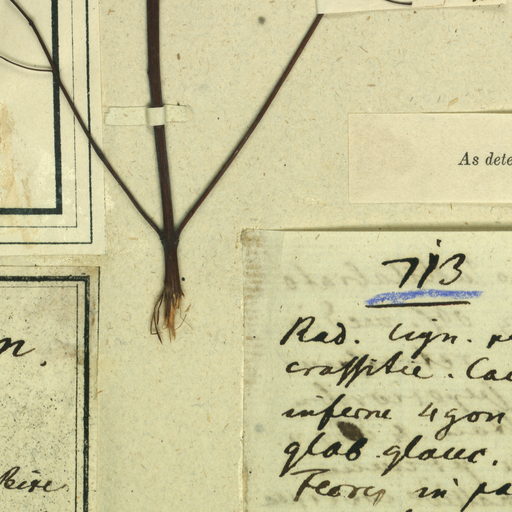 As dete
713
Rad. lign. pe
crassitie. Cau
inferne 4gon
glab glauc.
Flores in pa
n.